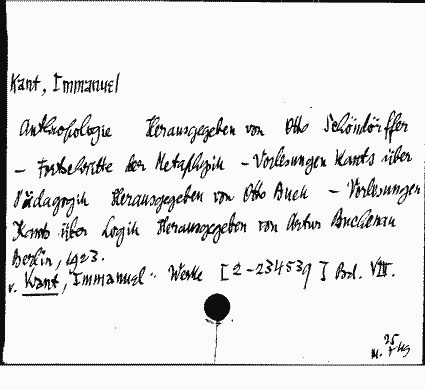 Kant, Immanuel
Anthropologie Herausgegeben von Otto Schöndörffer
- Fortschritte der Metaphysik - Vorlesungen Kants über
Pädagogik Herausgegeben von Otto Buek - Vorlesungen
Kants über Logik Herausgegeben von Artur Buchenau
Berlin, 1923.
v. Kant, Immanuel: Werke [2-234539] Bd. VIII.